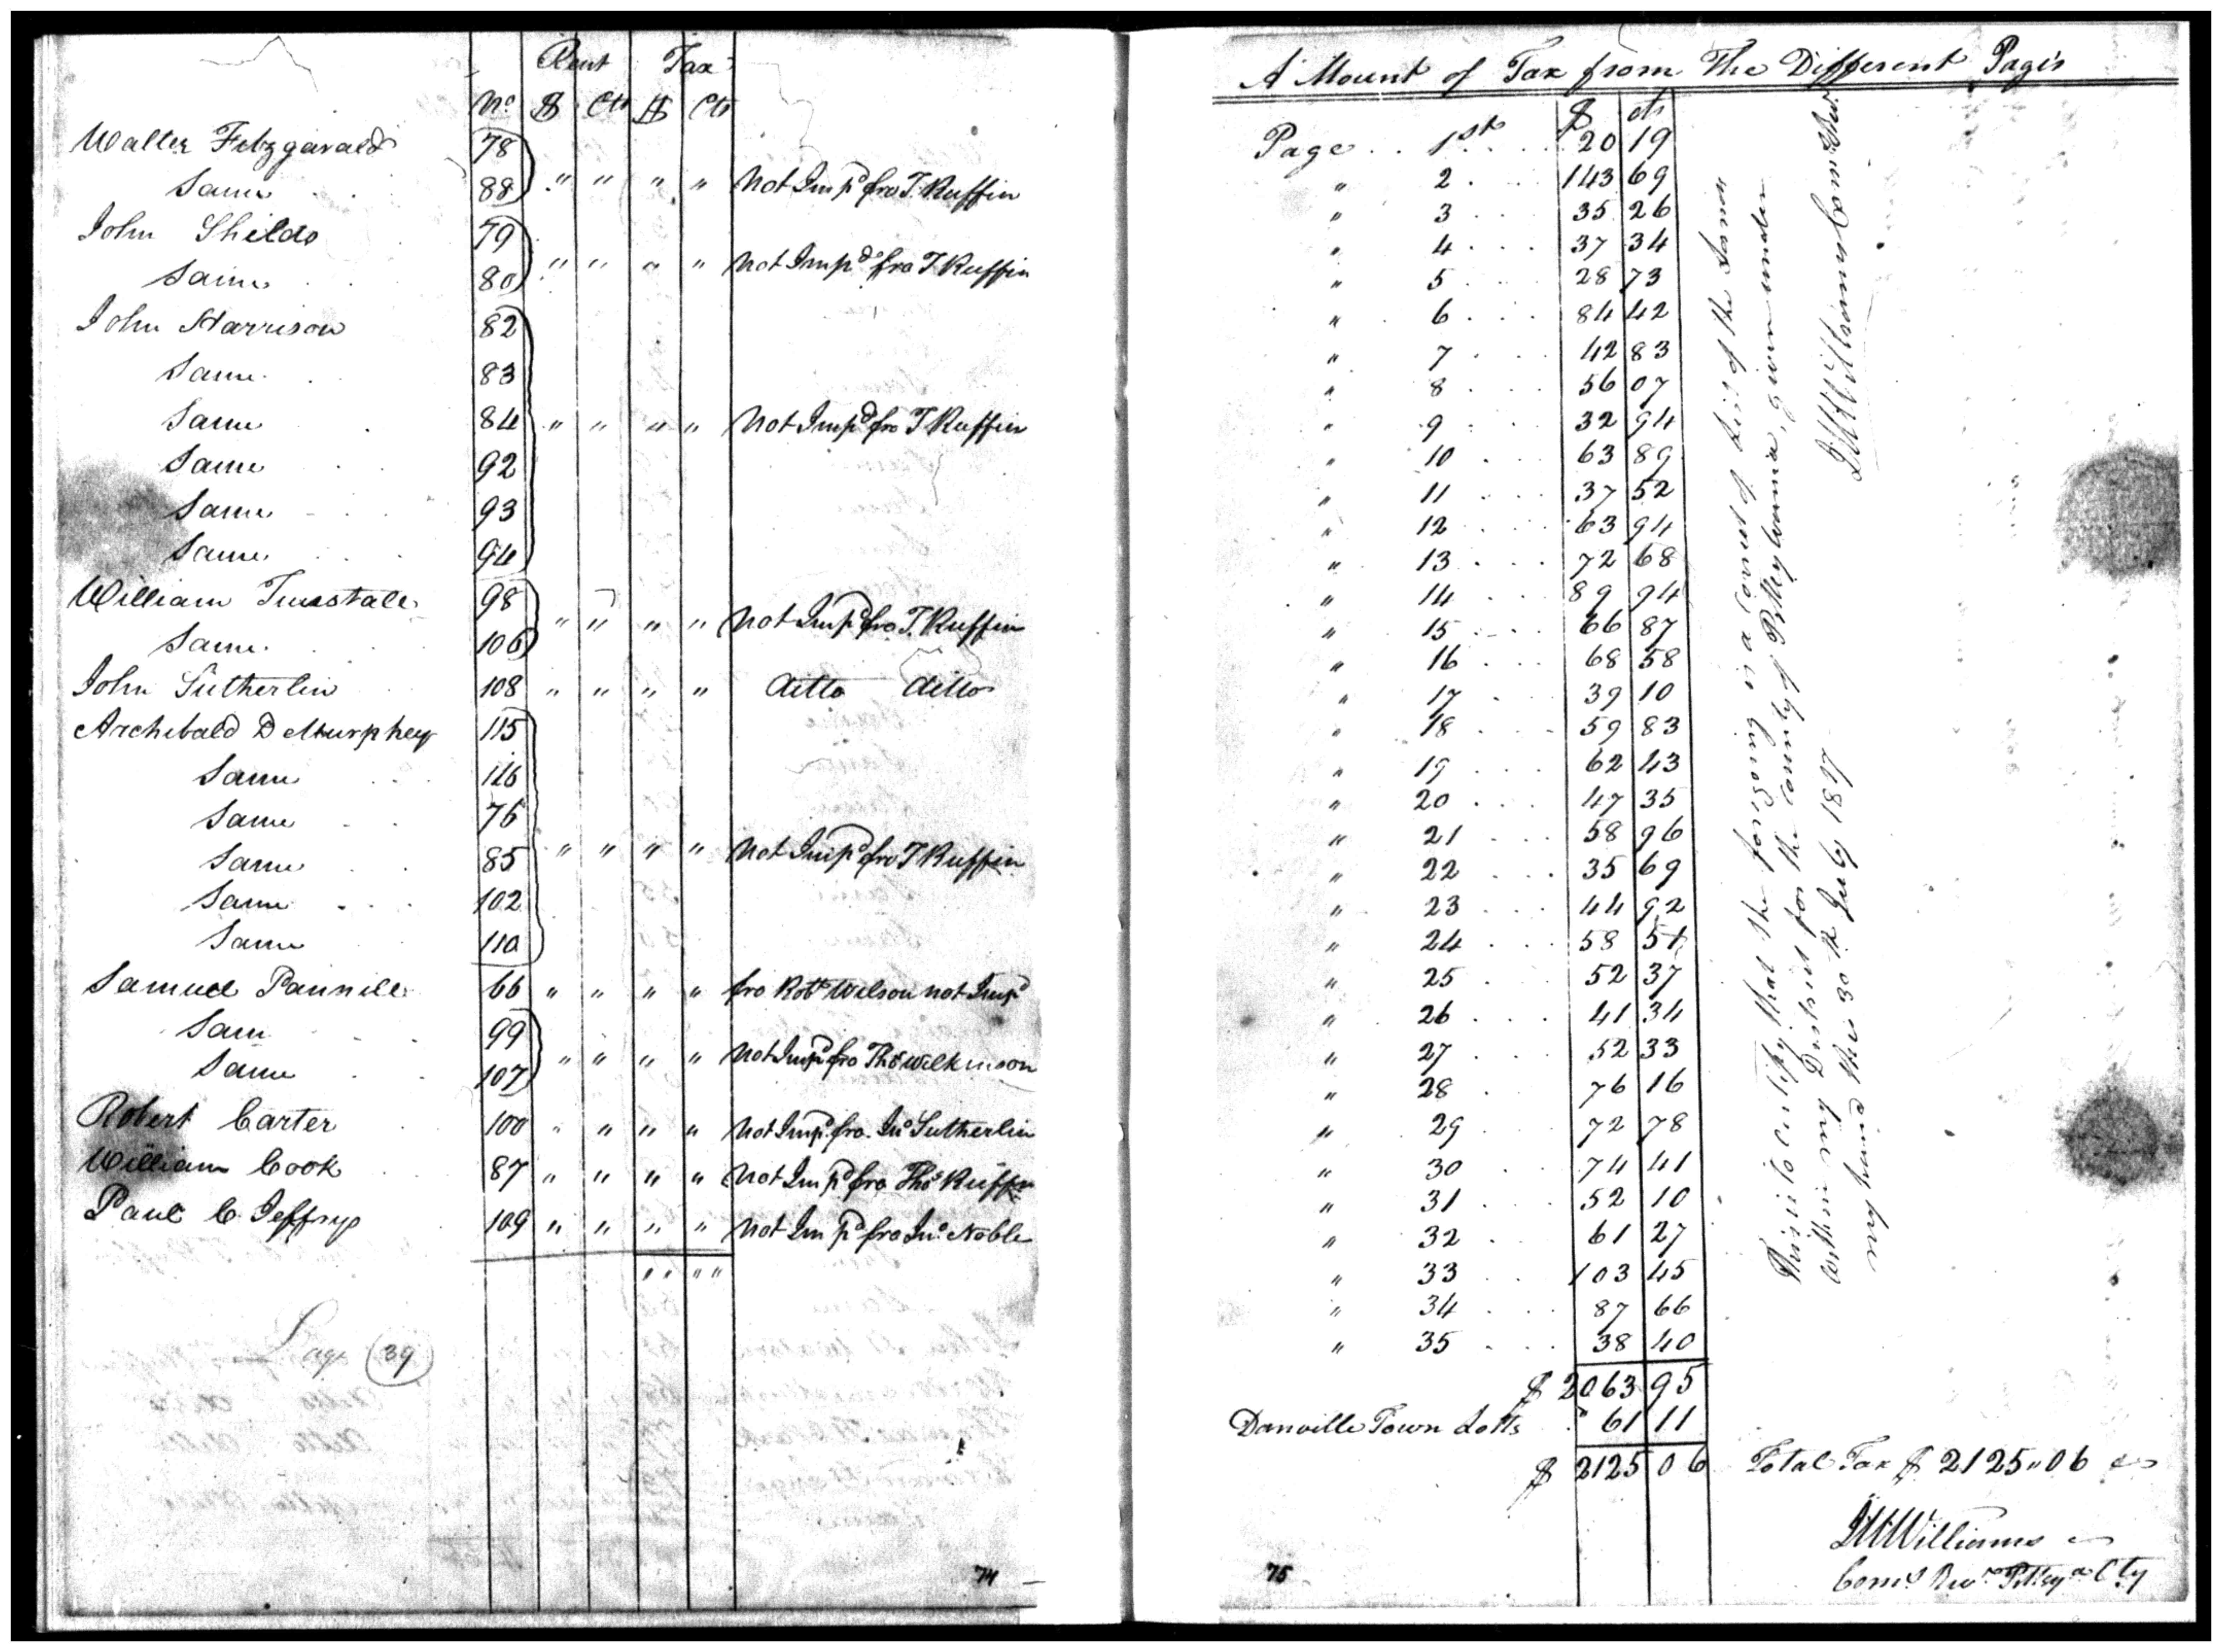 Rent Tax
No. $ Cts $ Cts
Walter Fitzgarald 78
Same 88 " " " " Not Impd fro T. Ruffin
John Shilds 79
Same 80 " " " " Not Impd fro T Ruffin
John Harrison 82
Same 83
Same 84 " " " " Not Impd fro T Ruffin
Same 92
Same 93
Same 94
William Tunstall 98
Same 106 " " " " Not Impd fro T. Ruffin
John Sutherlin 108 " " " " ditto ditto
Archibald D Murphey 115
Same 116
Same 76
Same 85 " " " " Not Impd fro T Ruffin
Same 102
Same 110
Samuel Pannill 66 " " " " fro Robt Wilson not Impd
Sam 99
Same 107 " " " " Not Impd fro Thos Wilkinson
Robert Carter 100 " " " " Not Impd fro Jno Sutherlin
William Cook 87 " " " " Not Impd fro Thos Ruffin
Paul C. Jeffrys 109 " " " " Not Impd fro Jno Noble
" " " "
Page 39
74
A Mount of Tax from The Different Pagis
$ cts
Page 1st 20 19
" 2 143 69
" 3 35 26
" 4 37 34
" 5 28 73
" 6 84 42
" 7 42 83
" 8 56 07
" 9 32 94
" 10 63 89
" 11 37 52
" 12 63 94
" 13 72 68
" 14 89 94
" 15 66 87
" 16 68 58
" 17 39 10
" 18 59 83
" 19 62 43
" 20 47 35
" 21 58 96
" 22 35 69
" 23 44 92
" 24 58 51
" 25 52 37
" 26 41 34
" 27 52 33
" 28 76 16
" 29 72 78
" 30 74 41
" 31 52 10
" 32 61 27
" 33 103 45
" 34 87 66
" 35 38 40
$ 2063 95
Danville Town Lotts " 61 11
$ 2125 06 Total Tax $ 2125 " 06
This is to certify that the foregoing is a correct of the Lands
within my District for the County of Pittsylvania, given under
my hand this 30th July 1817
Williams Com
Williams
Coms Revn Pittsya Cty
75